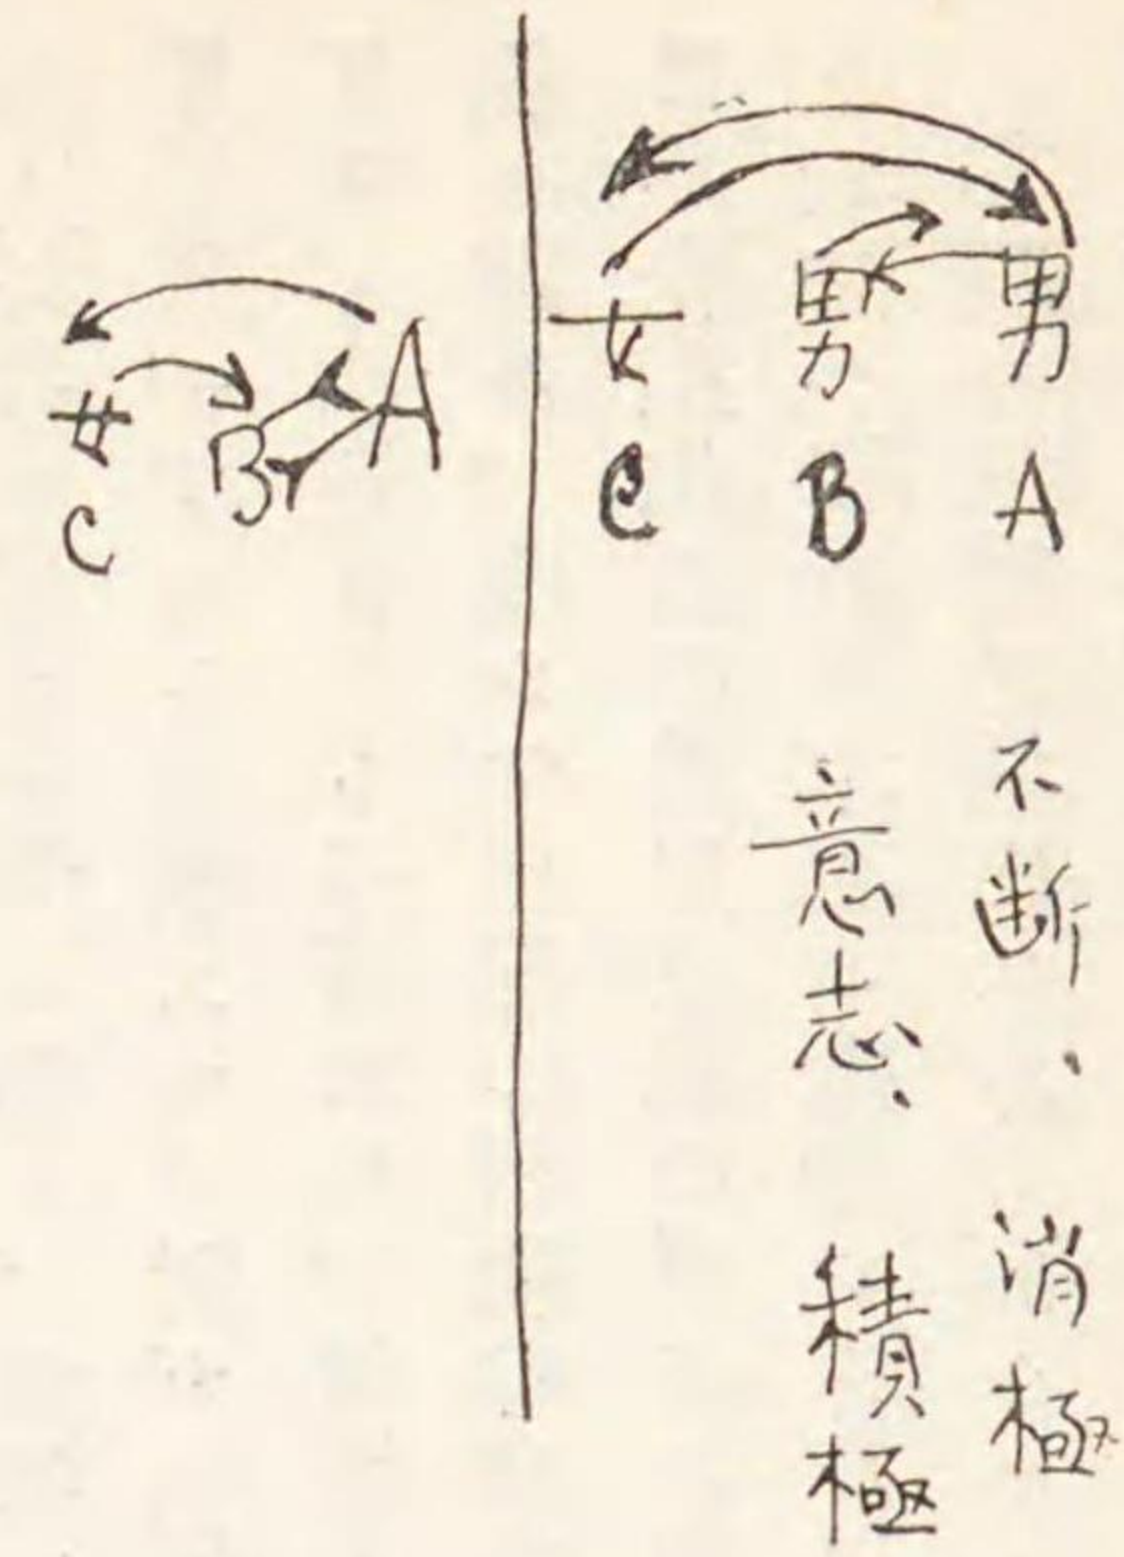 男 A 不断、消極
男 B 意志、積極
女 C
A
B
女 C